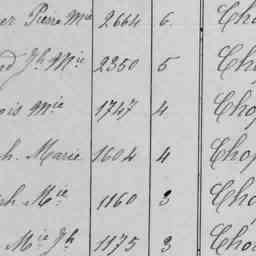 er Pierre Mie 2664 6 Cho
nd Jh Mie 2350 5 Cho
ois Mie 1747 4 Chop
h. Marie 1604 4 Chop
ph Mie 1160 3 Chop
Mie Jh 1175 3 Chop